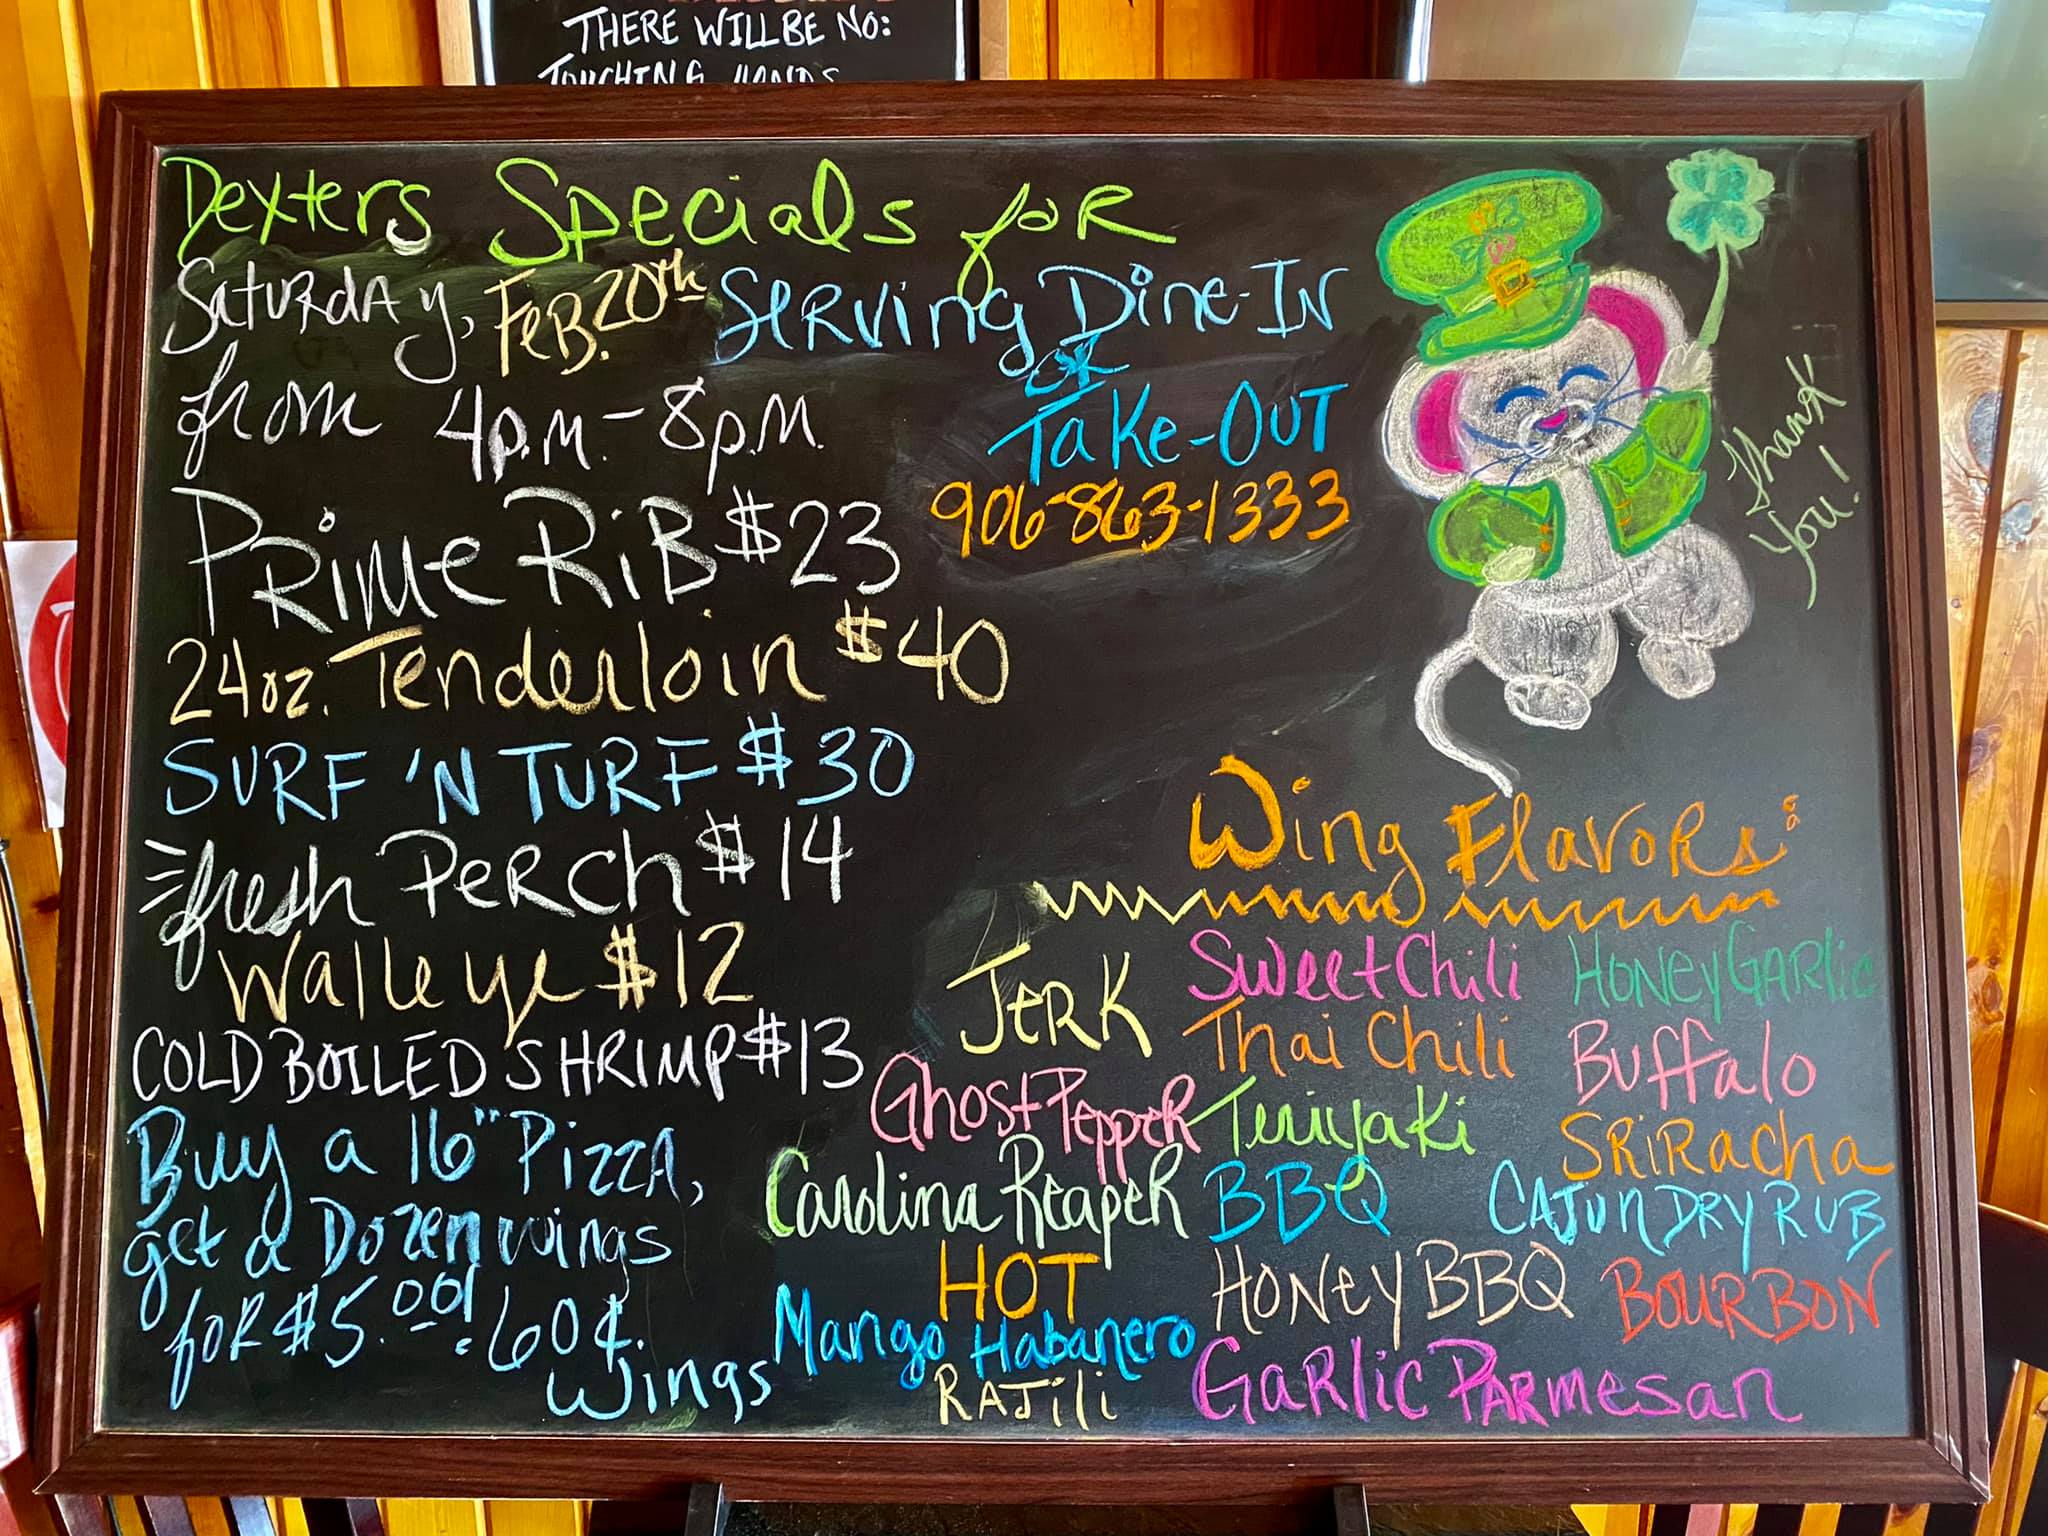 THERE WILL BE NO:
TOUCHING HANDS
Dexters Specials for
Saturday, Feb. 20th
from 4p.m.-8p.m.
Serving Dine-In
or
Take-Out
906-863-1333
Thank
You!
Prime Rib $23
24oz. Tenderloin $40
SURF 'N TURF $30
fresh Perch $14
Walleye $12
COLD BOILED SHRIMP $13
Buy a 16" Pizza,
get a Dozen wings
for $5.00!
60¢.
Wings
Wing Flavors:
Jerk
Ghost Pepper
Carolina Reaper
HOT
Mango Habanero
RAJili
Sweet Chili
Thai Chili
Teriyaki
BBQ
Honey BBQ
Garlic Parmesan
Honey Garlic
Buffalo
Sriracha
CAJUN DRY RUB
BOURBON